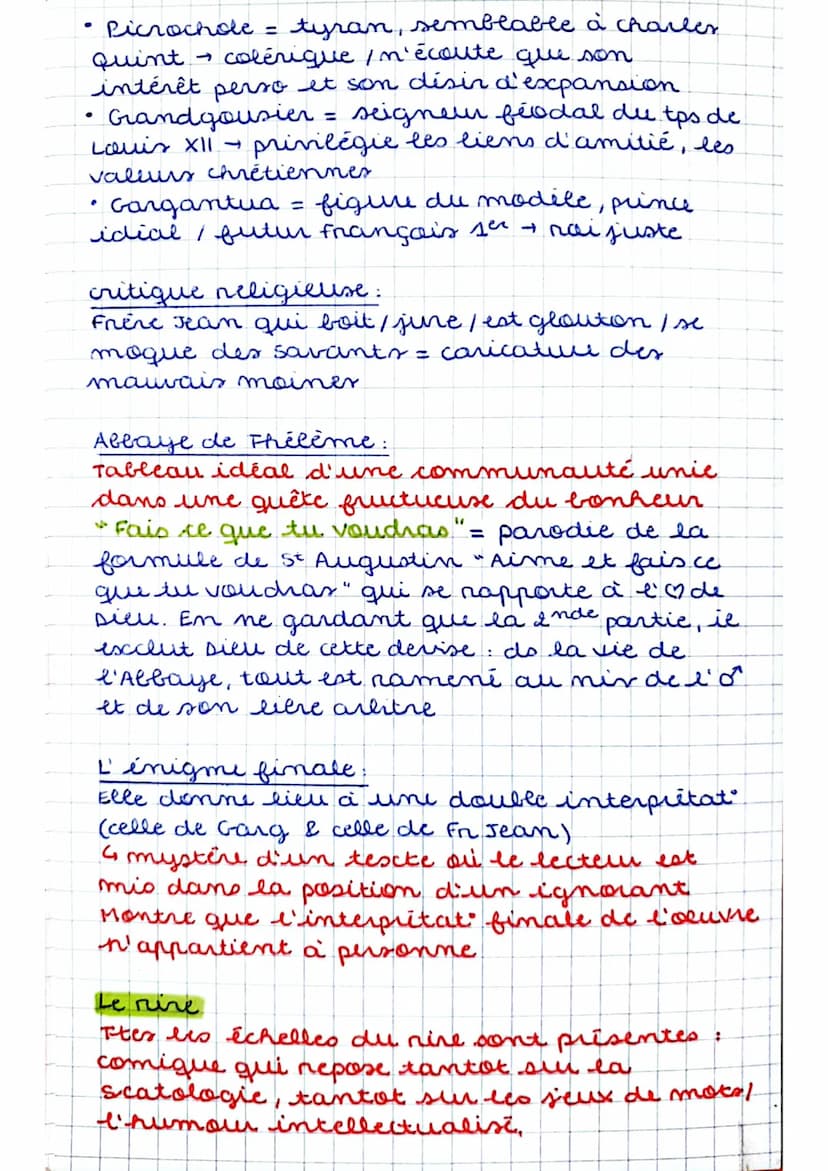 • Picrochole = tyran, semblable à Charles
Quint → colérique / n'écoute que son
intérêt perso et son désir d'expansion
• Grandgousier = seigneur féodal du tps de
Louis XII → privilégie les liens d'amitié, les
valeurs chrétiennes
• Gargantua = figure du modèle, prince
idéal / futur François 1er → roi juste
critique religieuse :
Frère Jean qui boit / jure / est glouton / se
moque des savants = caricature des
mauvais moines
Abbaye de Thélème :
Tableau idéal d'une communauté unie
dans une quête fructueuse du bonheur
"Fais ce que tu voudras" = parodie de la
formule de St Augustin "Aime et fais ce
que tu voudras" qui se rapporte à l'♡ de
Dieu. En ne gardant que la 2nde partie, il
exclut Dieu de cette devise : ds la vie de
l'Abbaye, tout est ramené au niv de l'♂
et de son libre arbitre
L'énigme finale :
Elle donne lieu à une double interprétat°
(celle de Garg & celle de Fr Jean)
↳ mystère d'un texte où le lecteur est
mis dans la position d'un ignorant
Montre que l'interprétat° finale de l'oeuvre
n'appartient à personne
Le rire
Ttes les échelles du rire sont présentes :
comique qui repose tantot sur la
scatologie, tantot sur les jeux de mots /
l'humour intellectualisé.